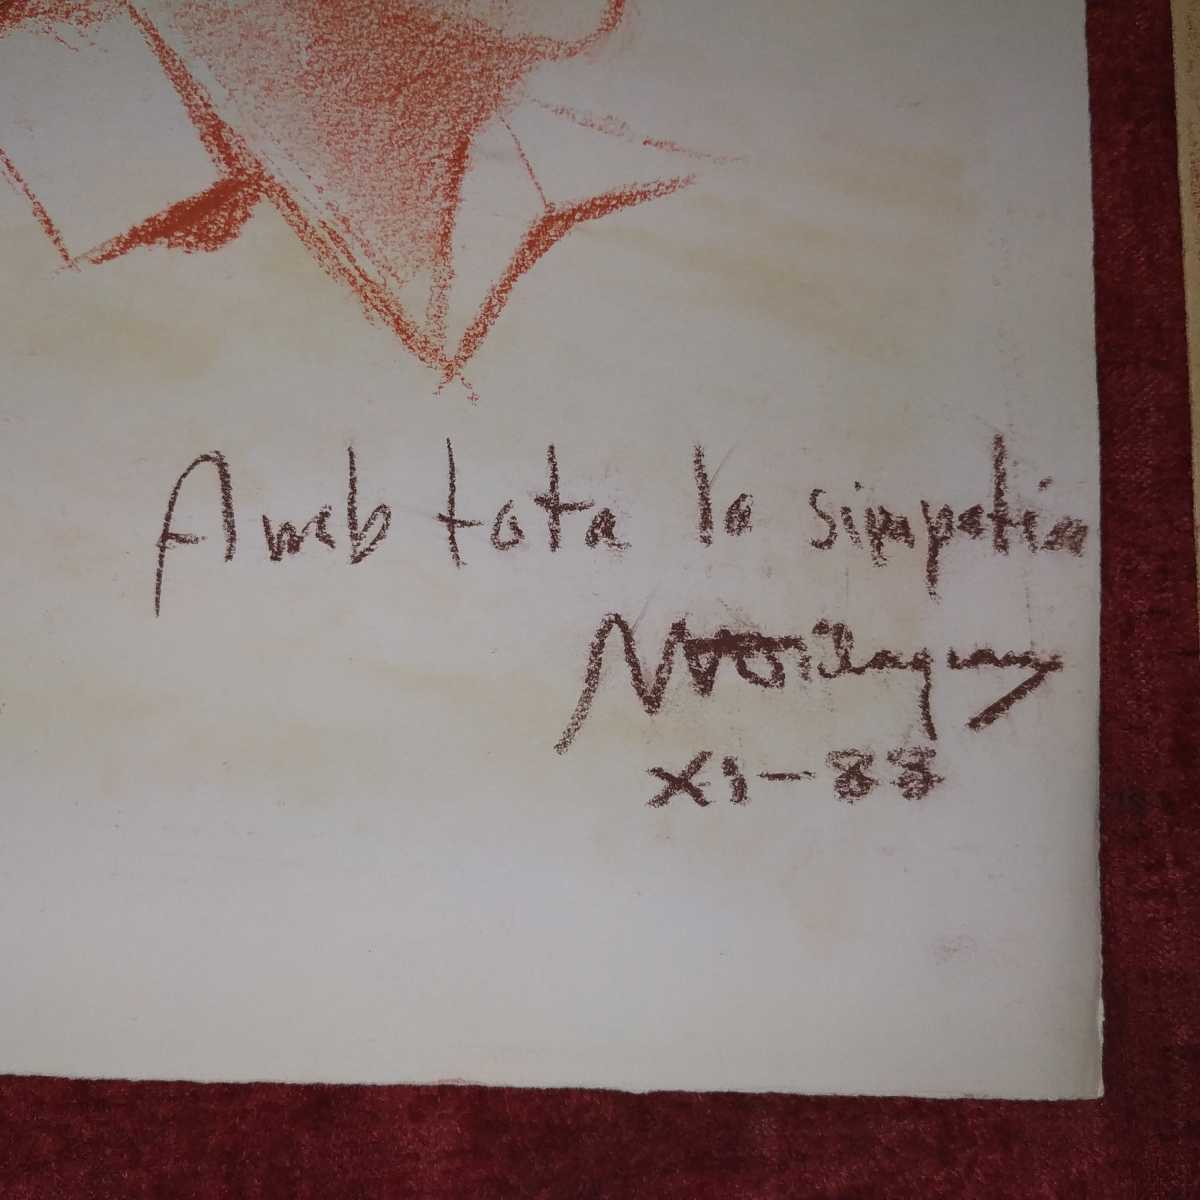 Amb tota la simpatia
XI-88